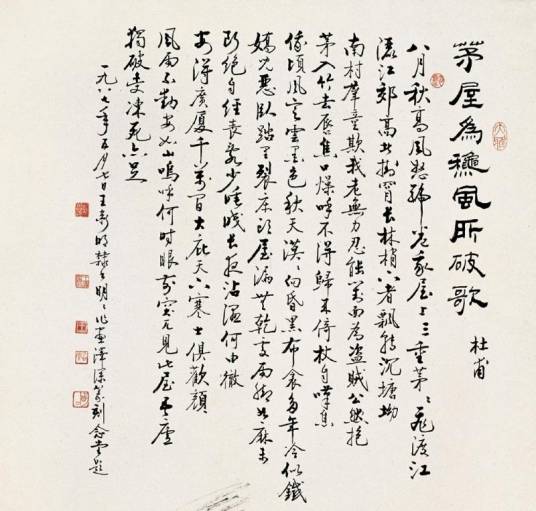 茅屋為穐風所破歌
杜甫
八月秋高風怒號卷我屋上三重茅〻飛渡江
灑江郊高者掛罥長林梢下者飄轉沉塘坳
南村羣童欺我老無力忍能對面為盜賊公然抱
茅入竹去唇焦口燥呼不得歸來倚杖自嘆
俄頃風定雲墨色秋天漠〻向昏黑布衾多年冷似鐵
嬌兒惡臥踏里裂床頭屋漏無乾處雨腳如麻未
斷絕自經喪亂少睡眠長夜沾濕何由徹
安得廣厦千萬間大庇天下寒士俱歡顏
風雨不動安如山嗚呼何時眼前突兀見此屋吾廬
獨破受凍死亦足
一九八七年五月七日王壽明隸書明〻作畫澤深篆刻念堂題